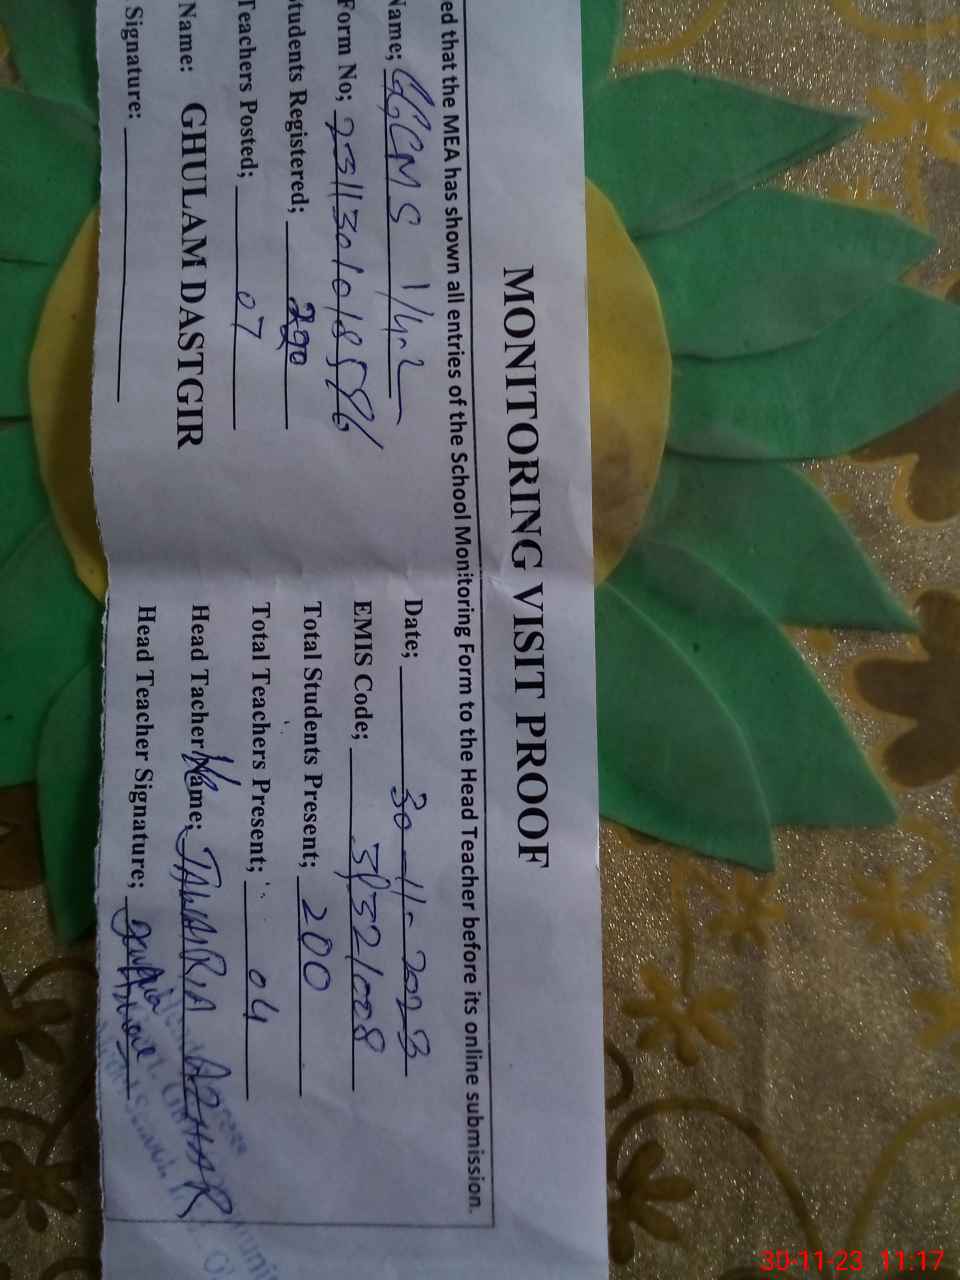 MONITORING VISIT PROOF
ed that the MEA has shown all entries of the School Monitoring Form to the Head Teacher before its online submission.
Name; GGCMS 1/4.2 Date; 30-11-2023
Form No; 2311301018596 EMIS Code; 31321008
tudents Registered; 290 Total Students Present; 200
Teachers Posted; 07 Total Teachers Present; 04
Name: GHULAM DASTGIR Head Tacher Name; AZHAR
Signature: Head Teacher Signature;
30-11-23 11:17